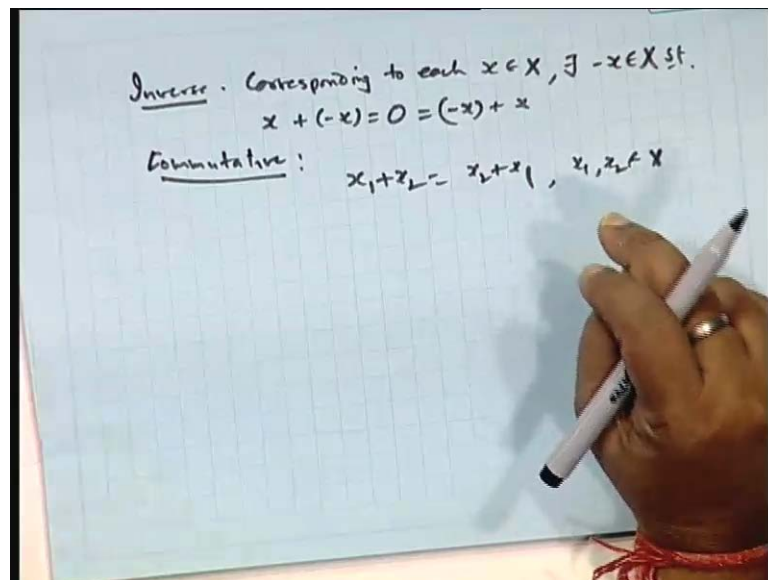 Inverse. Corresponding to each x ∈ X, ∃ -x ∈ X st.
x + (-x) = 0 = (-x) + x
Commutative : x₁+x₂ = x₂+x₁, x₁,x₂ ∈ X